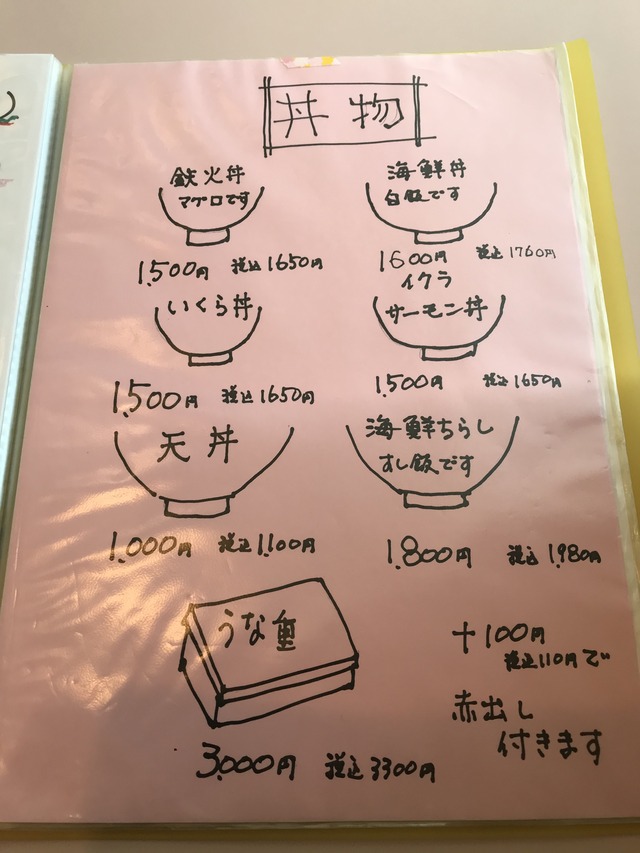 丼物
鉄火丼
マグロです
1,500円 税込1650円
海鮮丼
白飯です
1600円 税込1760円
いくら丼
1,500円 税込1650円
イクラ
サーモン丼
1,500円 税込1650円
天丼
1,000円 税込1,100円
海鮮ちらし
すし飯です
1,800円 税込1,980円
うな重
3,000円 税込3300円
+100円
税込110円で
赤出し
付きます